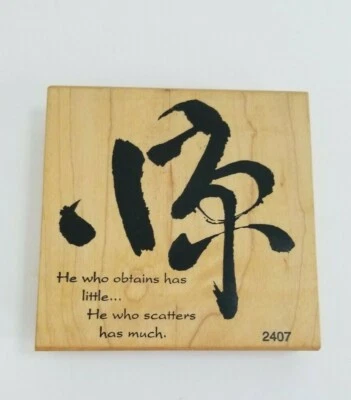 He who obtains has
little...
He who scatters
has much.
2407